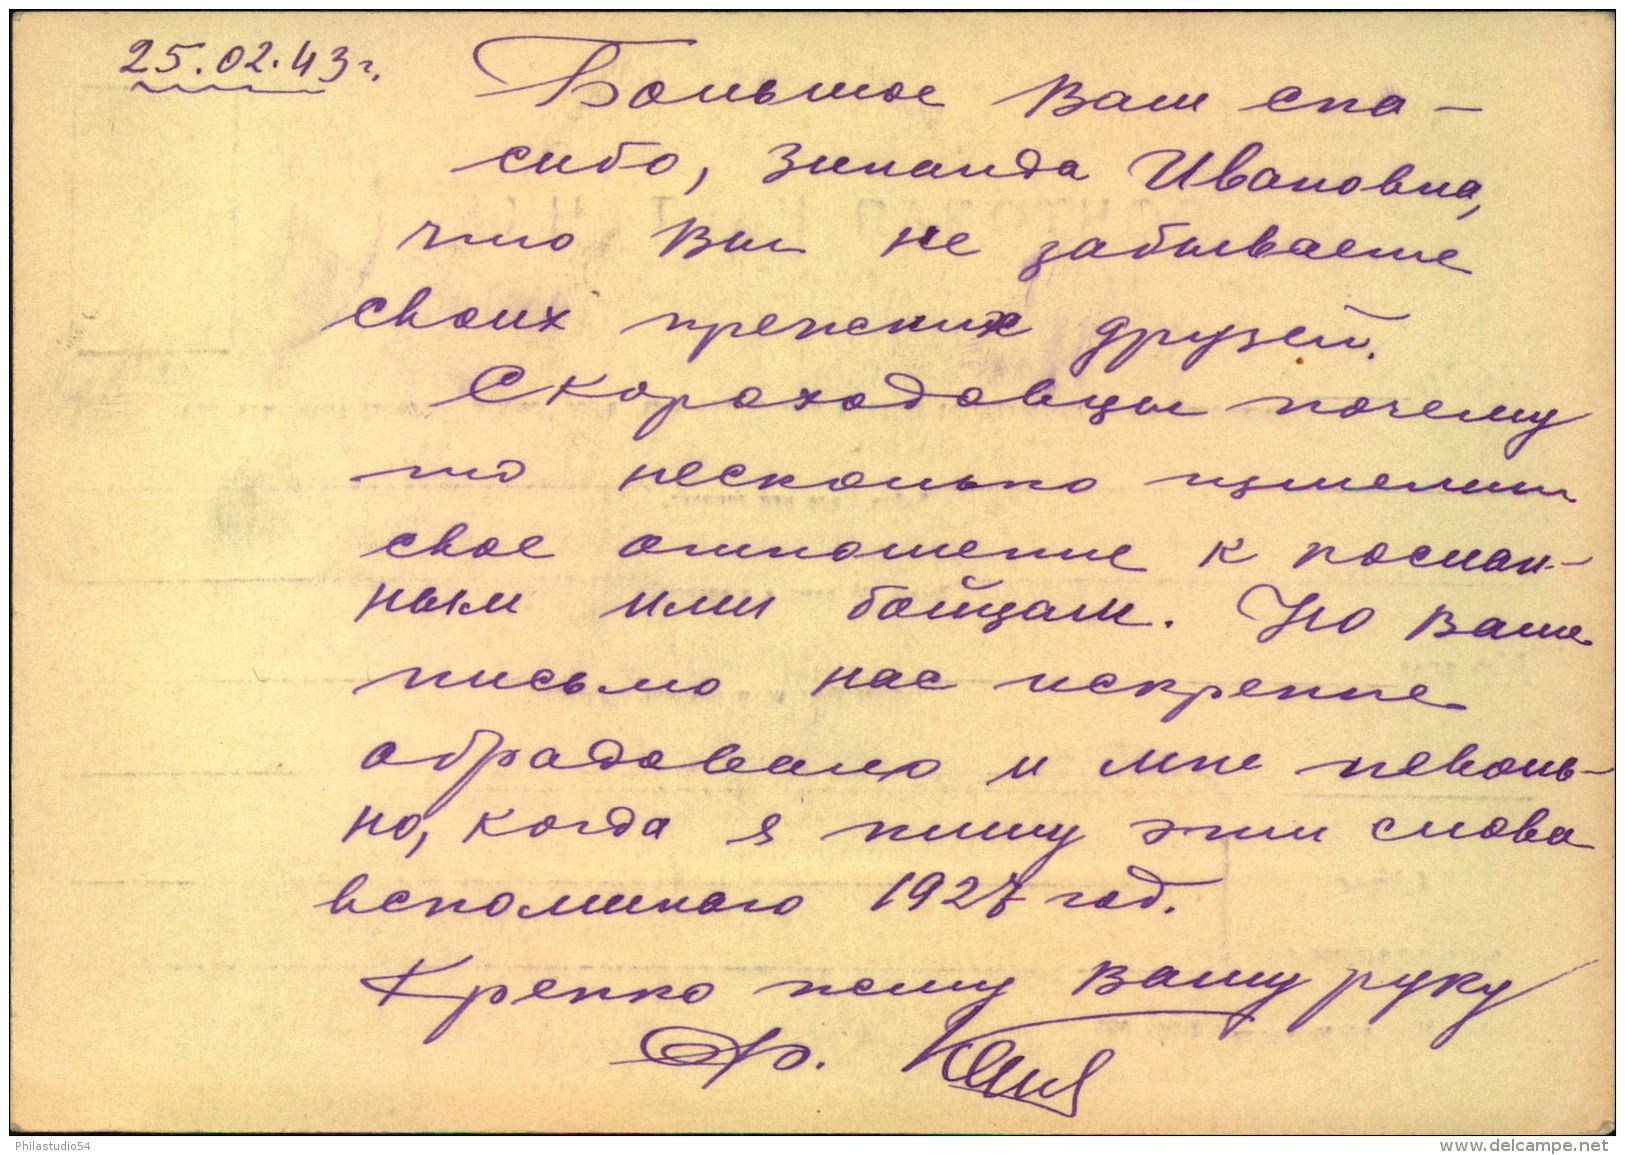 25.02.43 г.
Большое Вам спа-
сибо, Зинаида Ивановна,
что Вы не забываете
своих прежних друзей.
Скороходовцы почему
то несколько изменили
свое отношение к послан-
ным ими бойцам. Но Ваше
письмо нас искренне
обрадовало и мне неволь-
но, когда я пишу эти слова
вспоминаю 1927 год.
Крепко жму Вашу руку
Philastudio54
www.delcampe.net